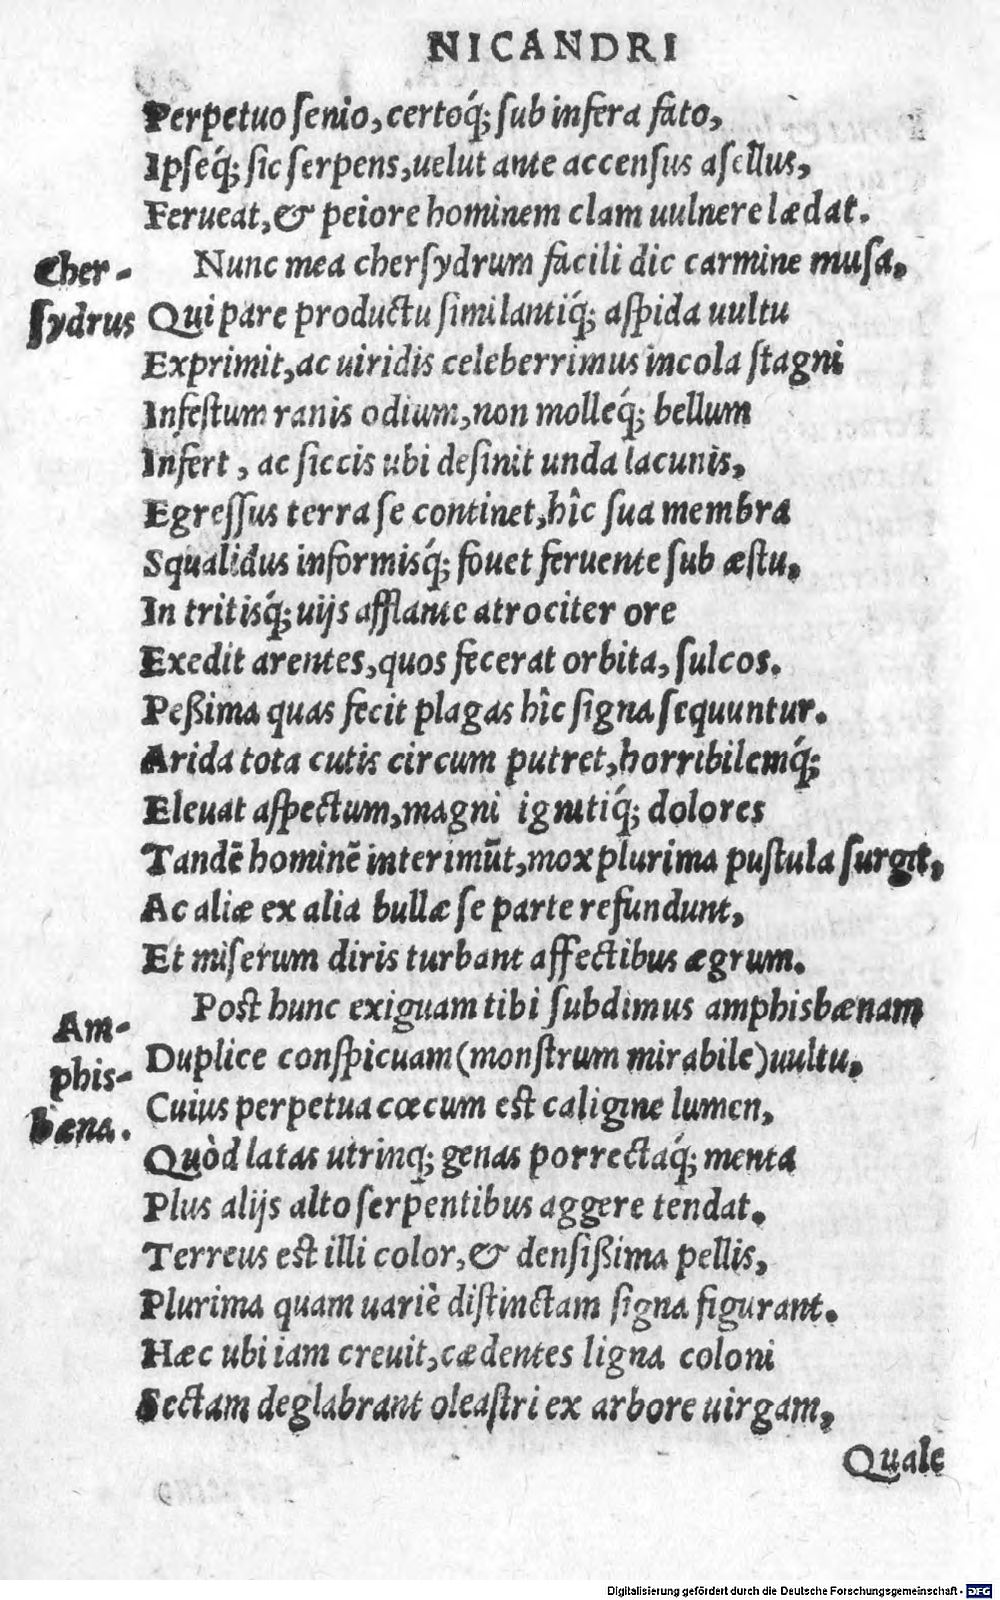 NICANDRI
Perpetuo ſenio, certoq́; ſub infera fato,
Ipſeq́; ſic ſerpens, uelut ante accenſus aſellus,
Ferueat, & peiore hominem clam uulnere lædat.
Cher-
ſydrus
Nunc mea cherſydrum facili dic carmine muſa,
Qui pare productu ſimilantiq́; aſpida uultu
Exprimit, ac uiridis celeberrimus incola ſtagni
Infeſtum ranis odium, non molleq́; bellum
Infert, ac ſiccis ubi deſinit unda lacunis,
Egreſſus terra ſe continet, hîc ſua membra
Squalidus informisq́; fouet feruente ſub æſtu,
In tritisq́; uijs afflante atrociter ore
Exedit arentes, quos fecerat orbita, ſulcos.
Peßima quas fecit plagas hîc ſigna ſequuntur.
Arida tota cutis circum putret, horribilemq́;
Eleuat aſpectum, magni ignitiq́; dolores
Tandē hominē interimūt, mox plurima puſtula ſurgit,
Ac aliæ ex alia bullæ ſe parte refundunt,
Et miſerum diris turbant affectibus ægrum.
Am-
phis-
bæna.
Post hunc exiguam tibi ſubdimus amphisbænam
Duplice conſpicuam (monſtrum mirabile) uultu,
Cuius perpetua cœcum est caligine lumen,
Quòd latas utrinq; genas porrectaq́; menta
Plus alijs alto ſerpentibus aggere tendat.
Terreus est illi color, & denſißima pellis,
Plurima quam uariè diſtinctam ſigna figurant.
Hæc ubi iam creuit, cædentes ligna coloni
Sectam deglabrant oleaſtri ex arbore uirgam,
Quale
Digitalisierung gefördert durch die Deutsche Forschungsgemeinschaft - DFG